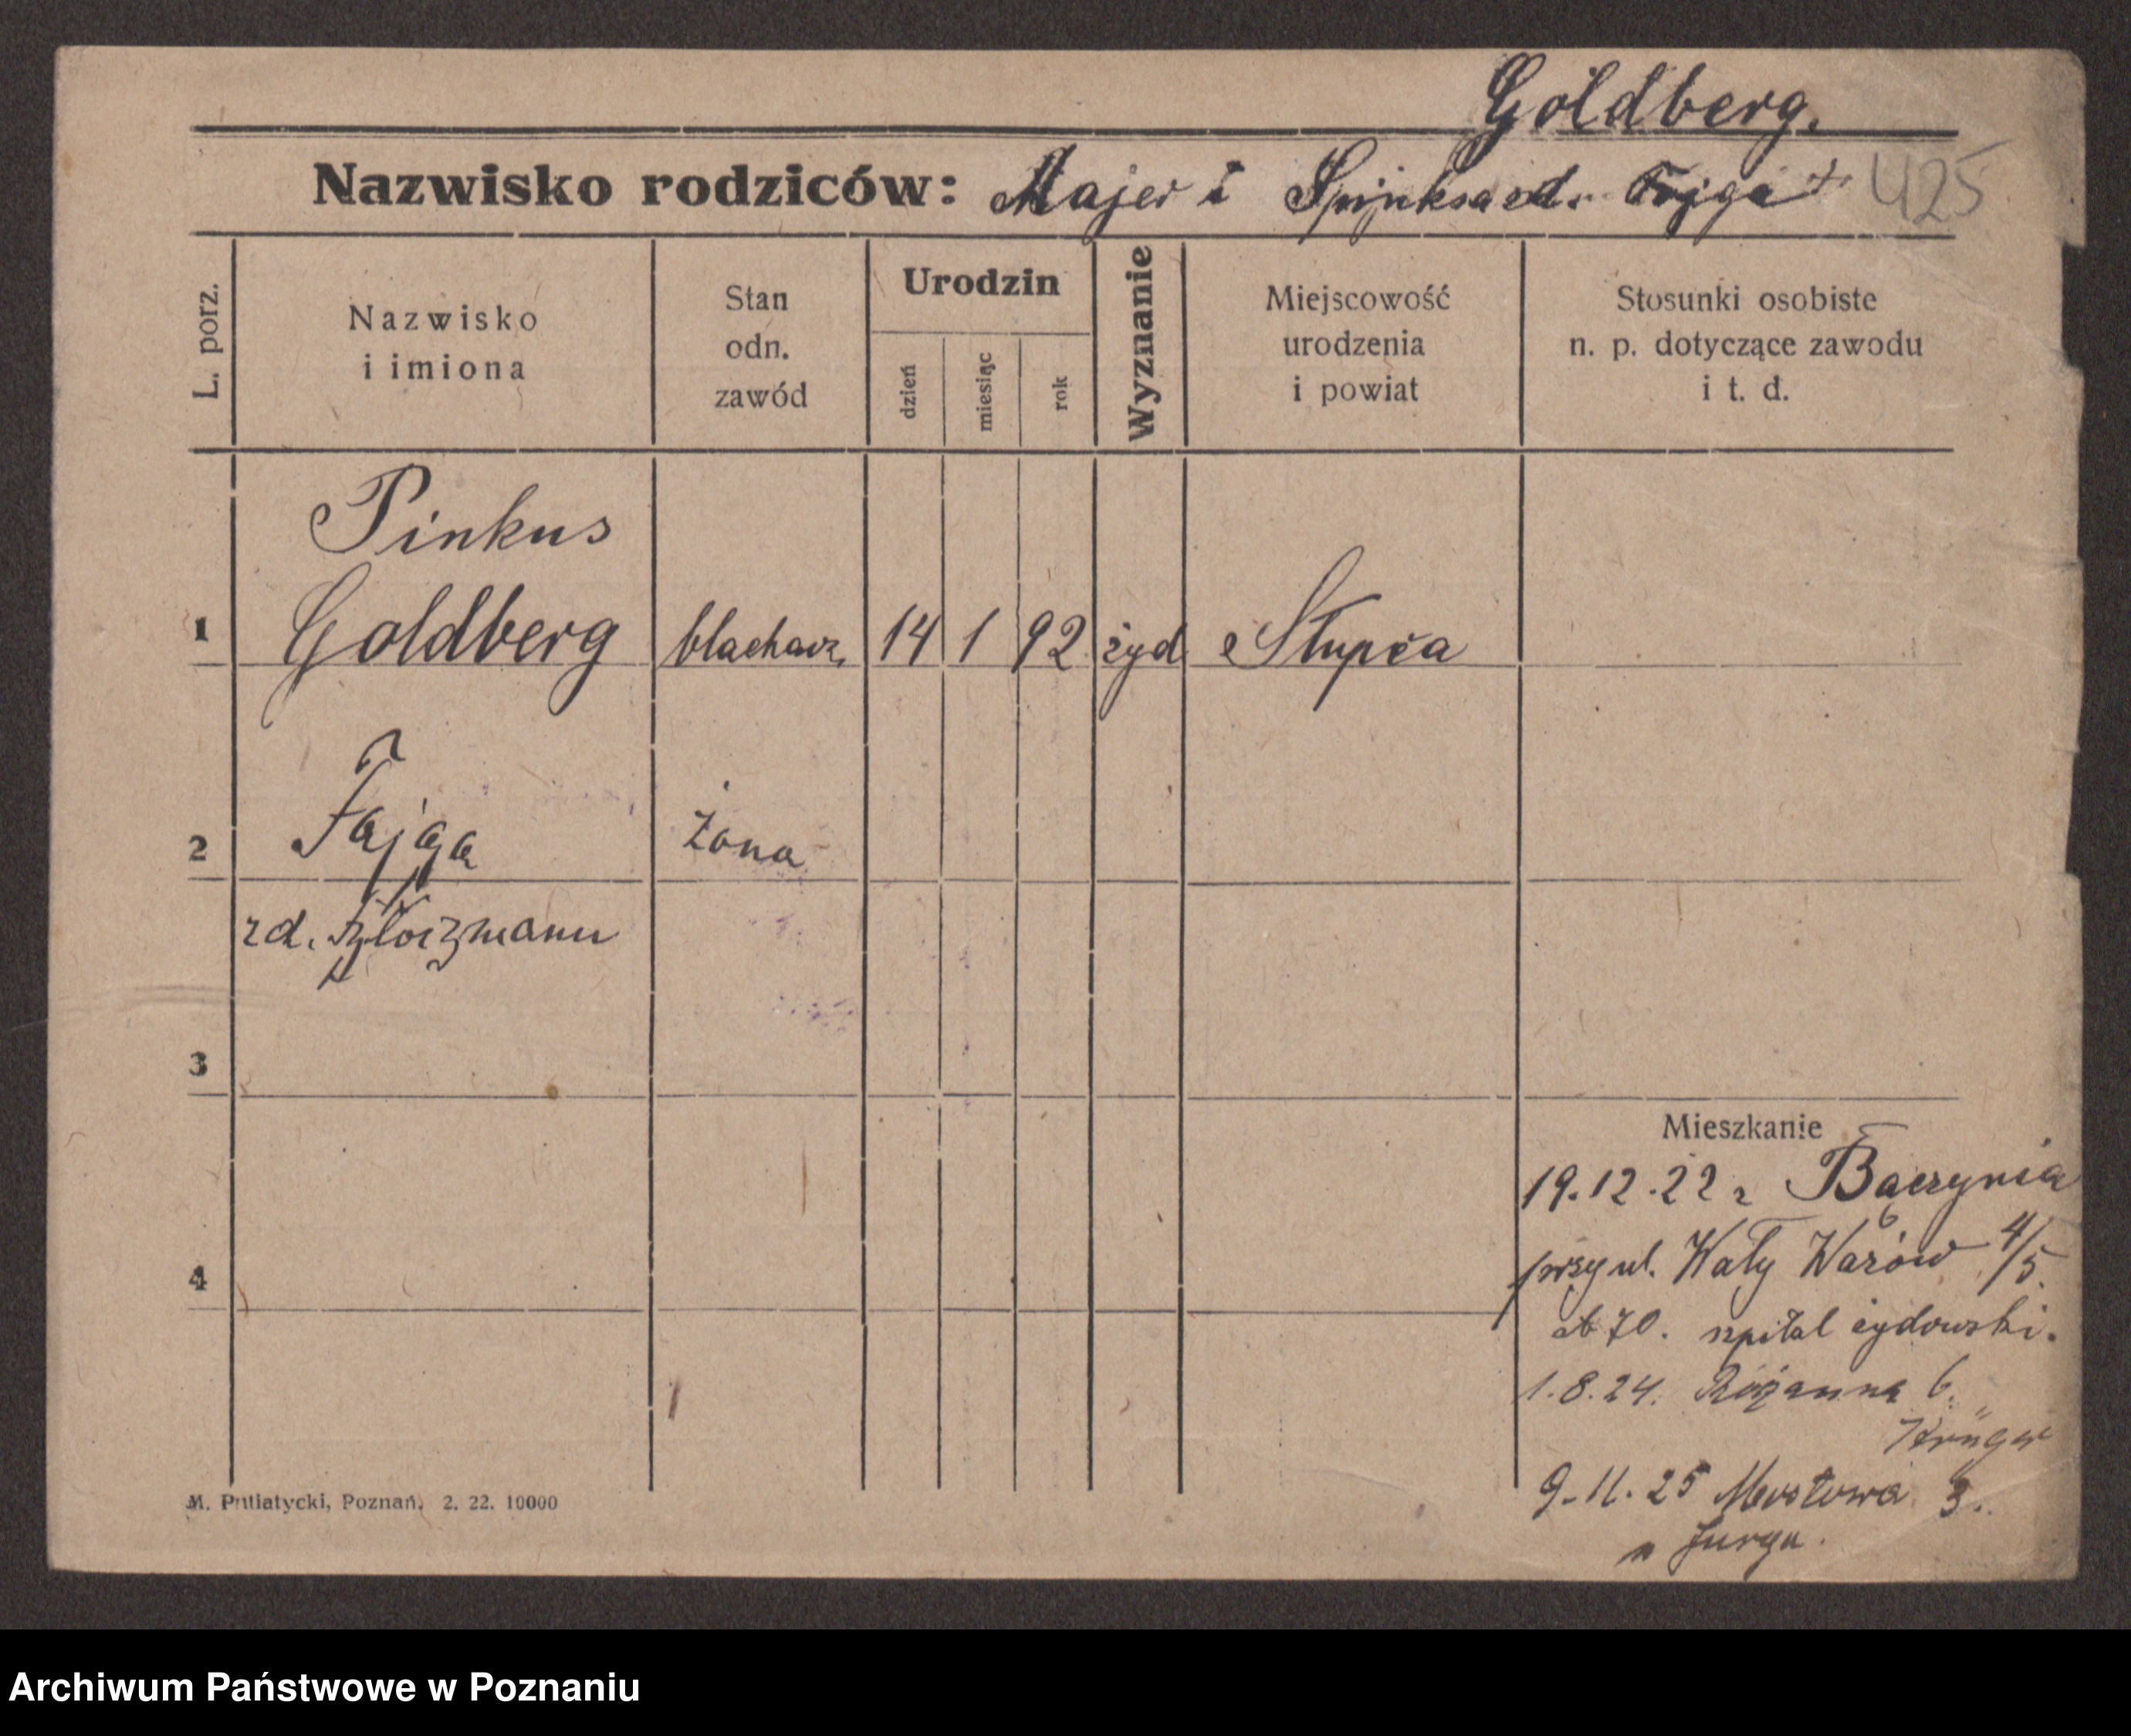 Goldberg.
Nazwisko rodziców: Majer i Fajga 425
L. porz.
Nazwisko
i imiona
Stan
odn.
zawód
Urodzin
dzień
miesiąc
rok
Wyznanie
Miejscowość
urodzenia
i powiat
Stosunki osobiste
n. p. dotyczące zawodu
i t. d.
Pinkus
1 Goldberg blacharz 14 1 92 żyd Słupca
2 Fajga żona
zd.
3
4
Mieszkanie
19.12.22 z
przy ul. Wały 4/5
szpital żydowski.
1.8.24. Różanna 6.
Krüger
9.11.25 Mostowa 3.
M. Putiatycki, Poznań. 2. 22. 10000
Archiwum Państwowe w Poznaniu